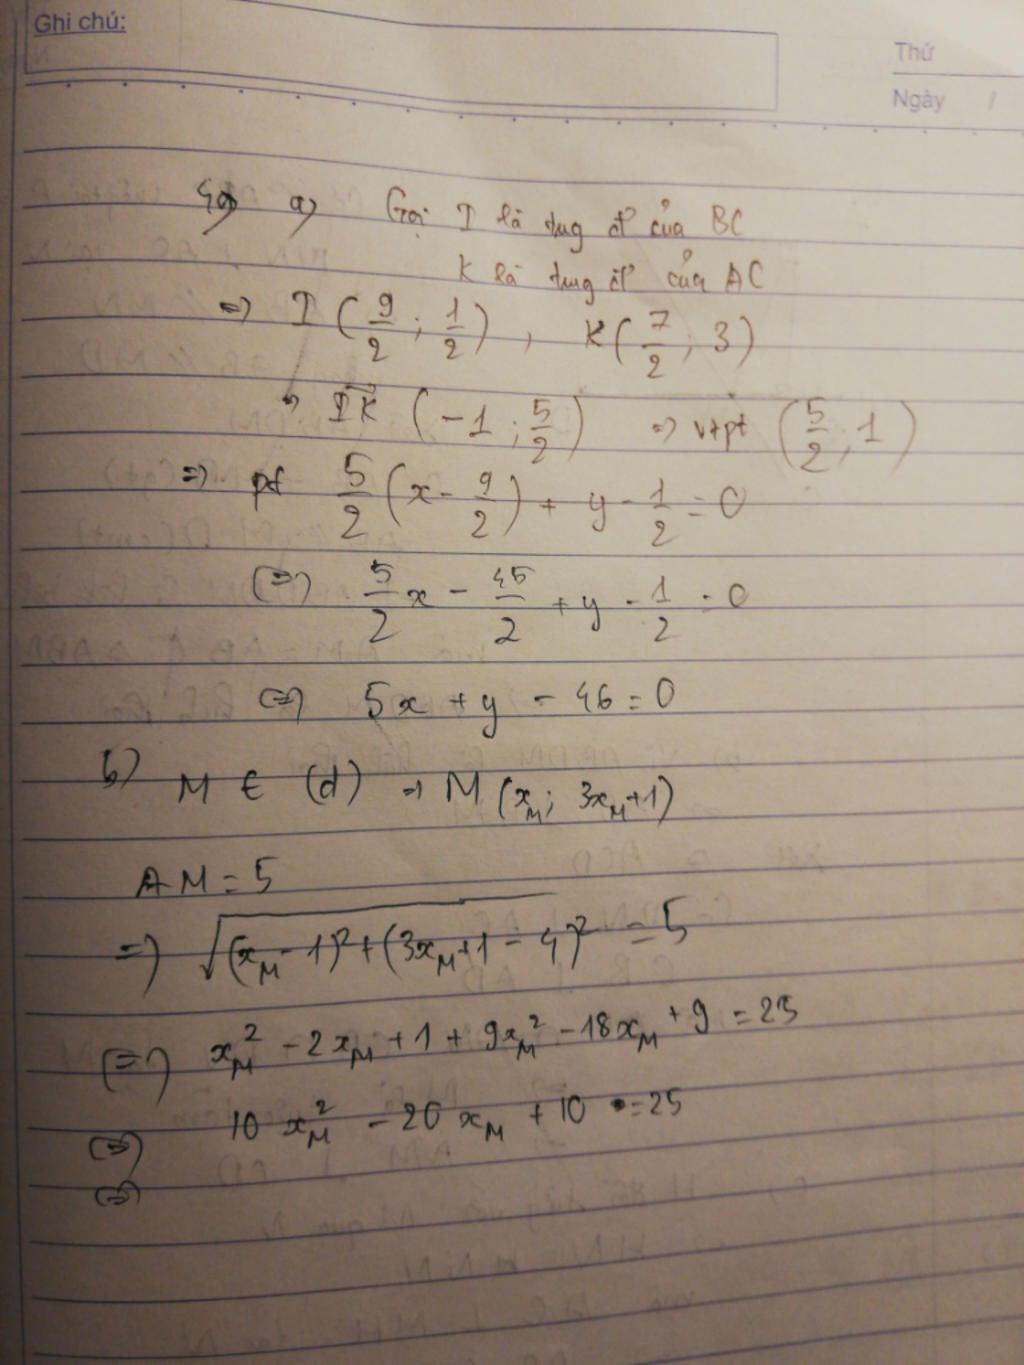 Ghi chú:
Thứ
Ngày /
a) Gọi I là tug đ' của BC
K là tug đ' của AC
=> I (9/2 ; 1/2) , K (7/2 ; 3)
=> IK (-1 ; 5/2) => vtpt (5/2 ; 1)
=> pt 5/2 (x - 9/2) + y - 1/2 = 0
(=>) 5/2 x - 45/2 + y - 1/2 = 0
(=>) 5x + y - 46 = 0
b) M ∈ (d) => M (x_M ; 3x_M + 1)
AM = 5
=> √((x_M - 1)² + (3x_M + 1 - 4)²) = 5
(=>) x_M² - 2x_M + 1 + 9x_M² - 18x_M + 9 = 25
(=>) 10 x_M² - 20 x_M + 10 = 25
(=>)